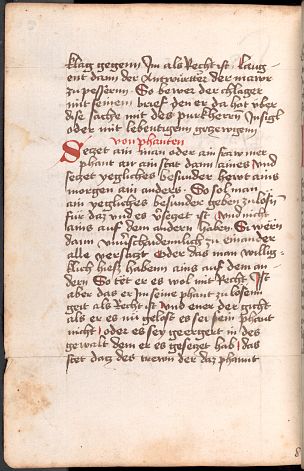 klag gegenn Im als Recht ist laug-
ent dann der Antwurtter der mawr
zu pessernn So bewer der chlager
mit seinem brief den er da hat vber
dise sache mit des purkherrn Insigl
oder mit lebentigenn gezewgenn
von phanten
Setzet ain man oder ain frawn mer
phant an ain stat dann aines vnd
setzet yegliches besunder hewt ains
morgen ain anders So sol man
ain yegliches besunder geben zu losn
fur daz vnd es versetzt ist vnd nicht
ains auf dem andern haben Si wern
dann vnuerschaidennlich zu einander
alle versatzt Oder das man willig-
klich hiess habenn ains auf dem an-
dern So tet er es wol mit Recht Ist
aber das er Im seine phant zu losenn
geit als Recht ist vnd ener der gicht
als er es nu gelost es sei sein phant
nicht oder es sey geergert in des
gewalt dem er es gesetzet hab das
stet datz des trewn der daz phannt